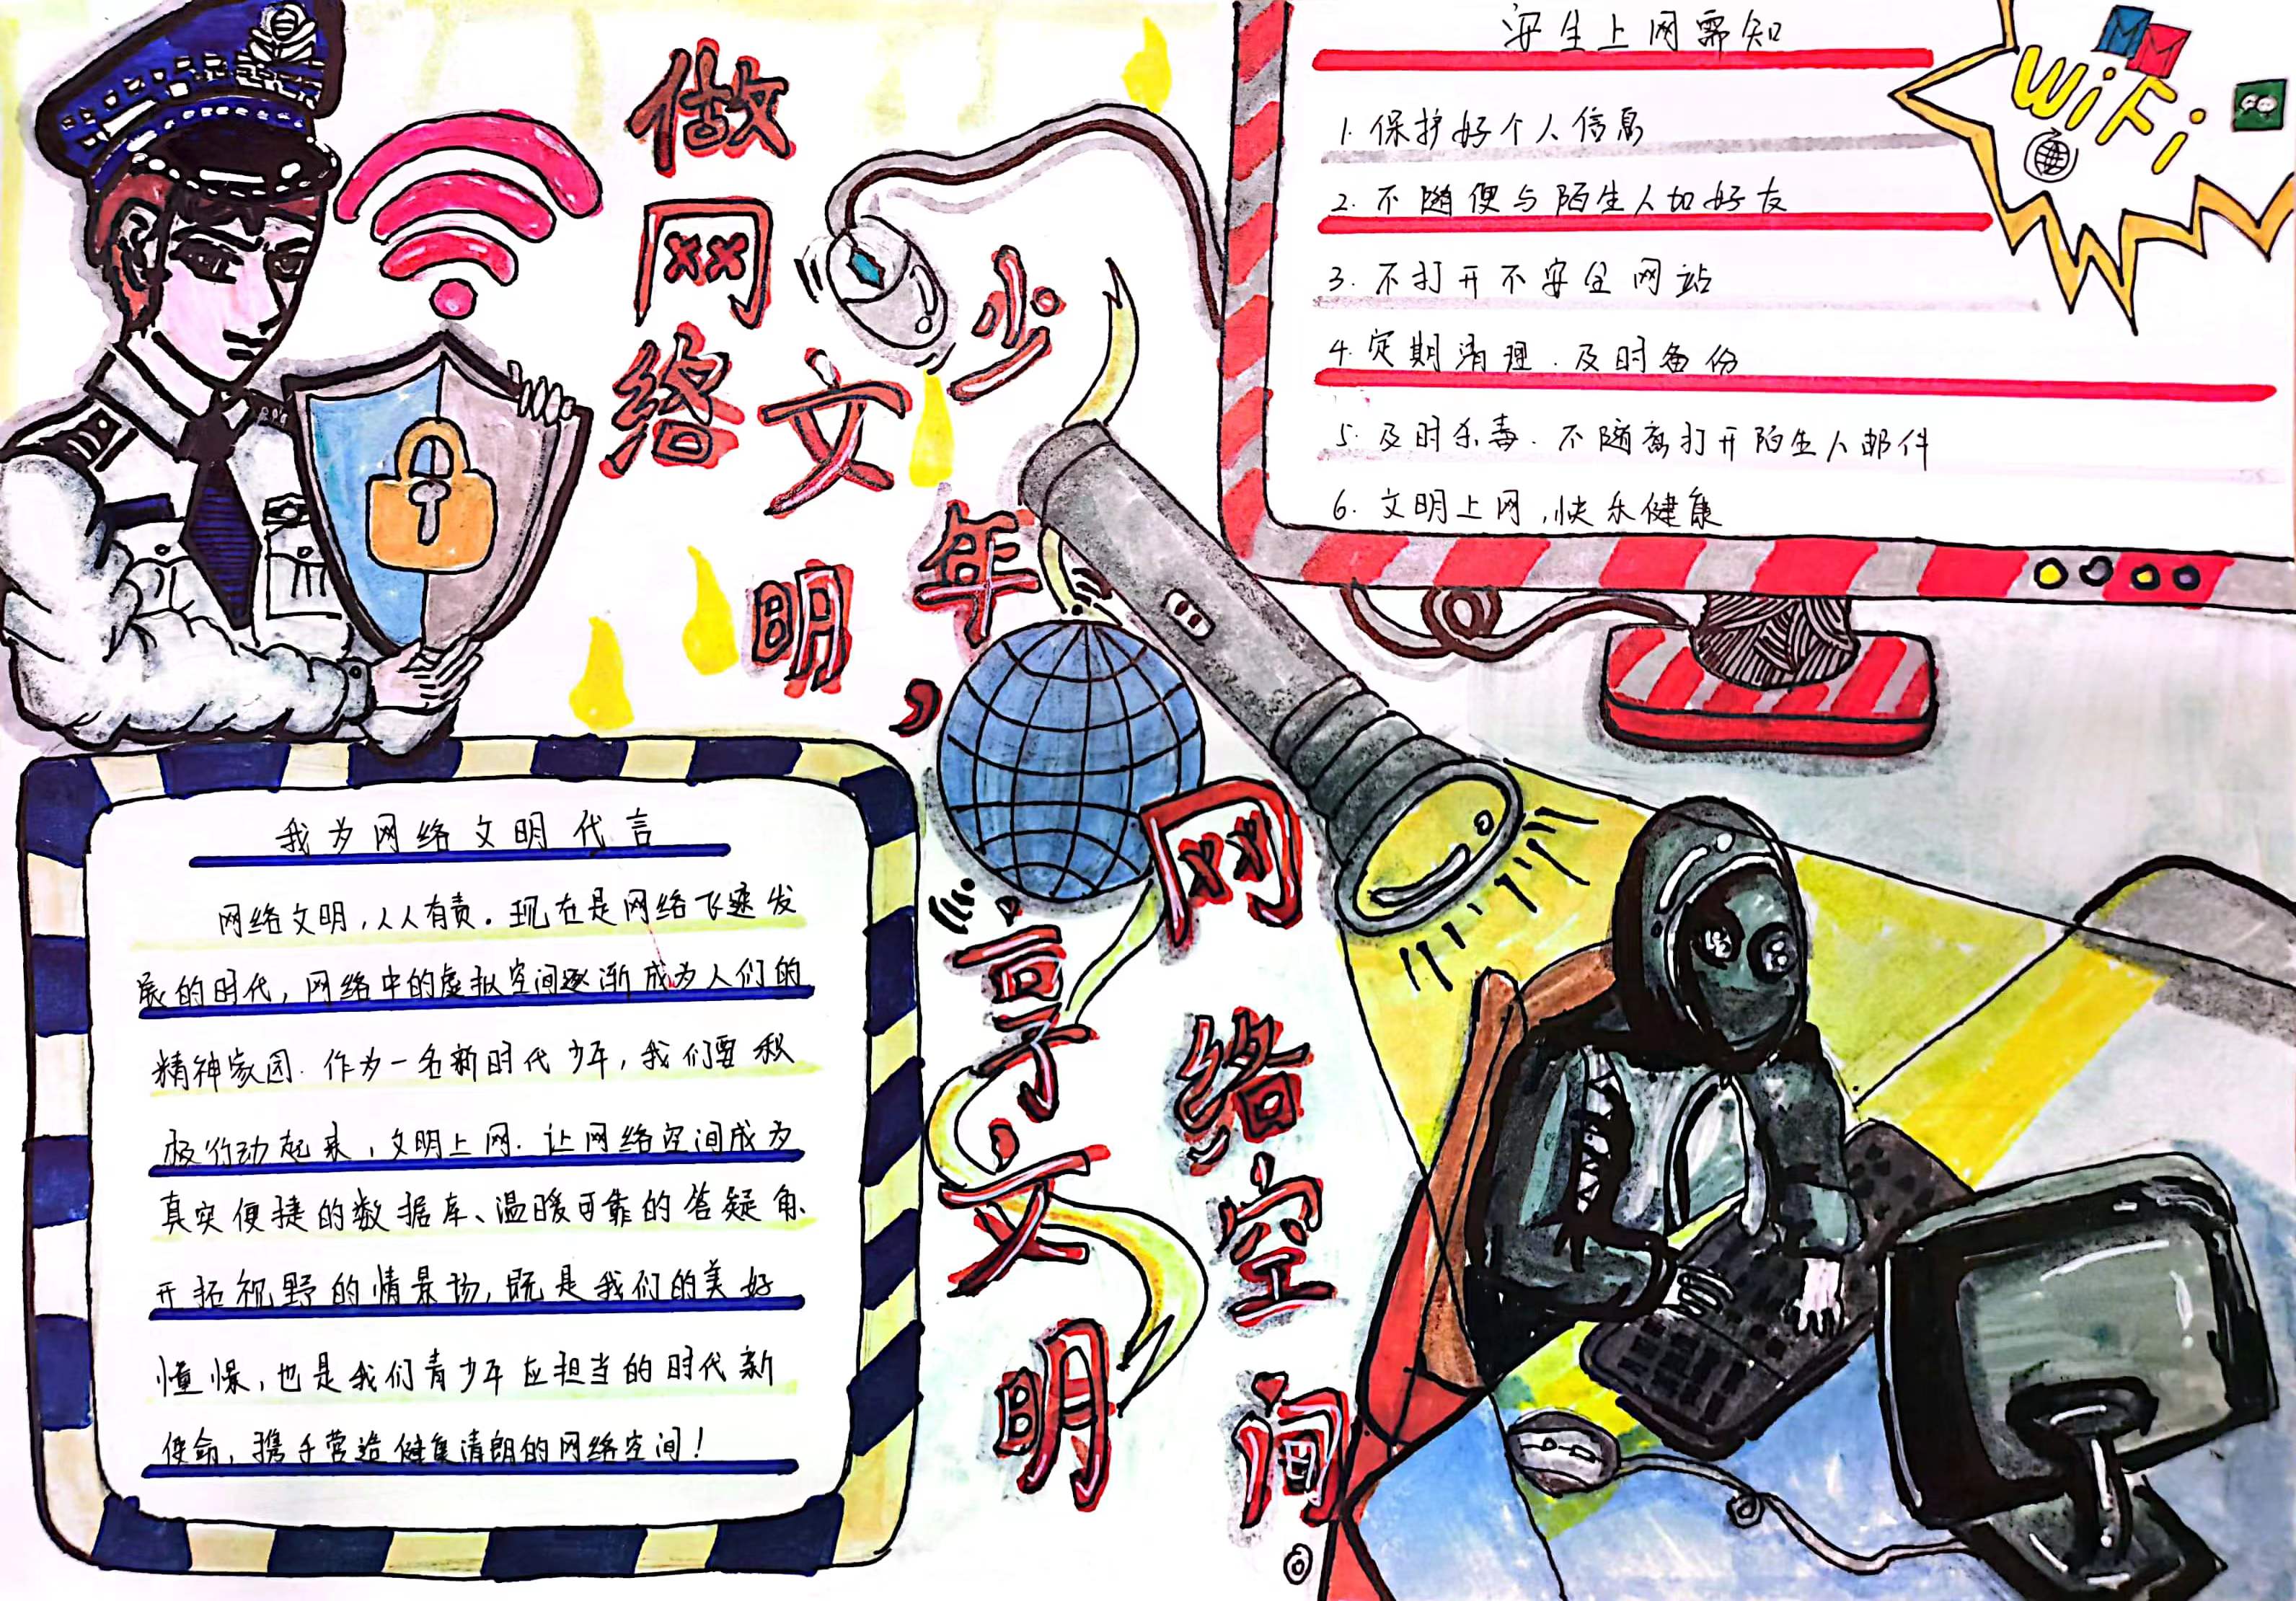 做网络文明少年，
享文明网络空间。
安全上网需知
1. 保护好个人信息
2. 不随便与陌生人加好友
3. 不打开不安全网站
4. 定期清理.及时备份
5. 及时杀毒.不随意打开陌生人邮件
6. 文明上网,快乐健康
WiFi
我为网络文明代言
网络文明,人人有责。现在是网络飞速发
展的时代,网络中的虚拟空间逐渐成为人们的
精神家园.作为一名新时代少年,我们要积
极行动起来,文明上网.让网络空间成为
真实便捷的数据库、温暖可靠的答疑角、
开拓视野的情景场,既是我们的美好
憧憬,也是我们青少年应担当的时代新
使命,携手营造健康清朗的网络空间!